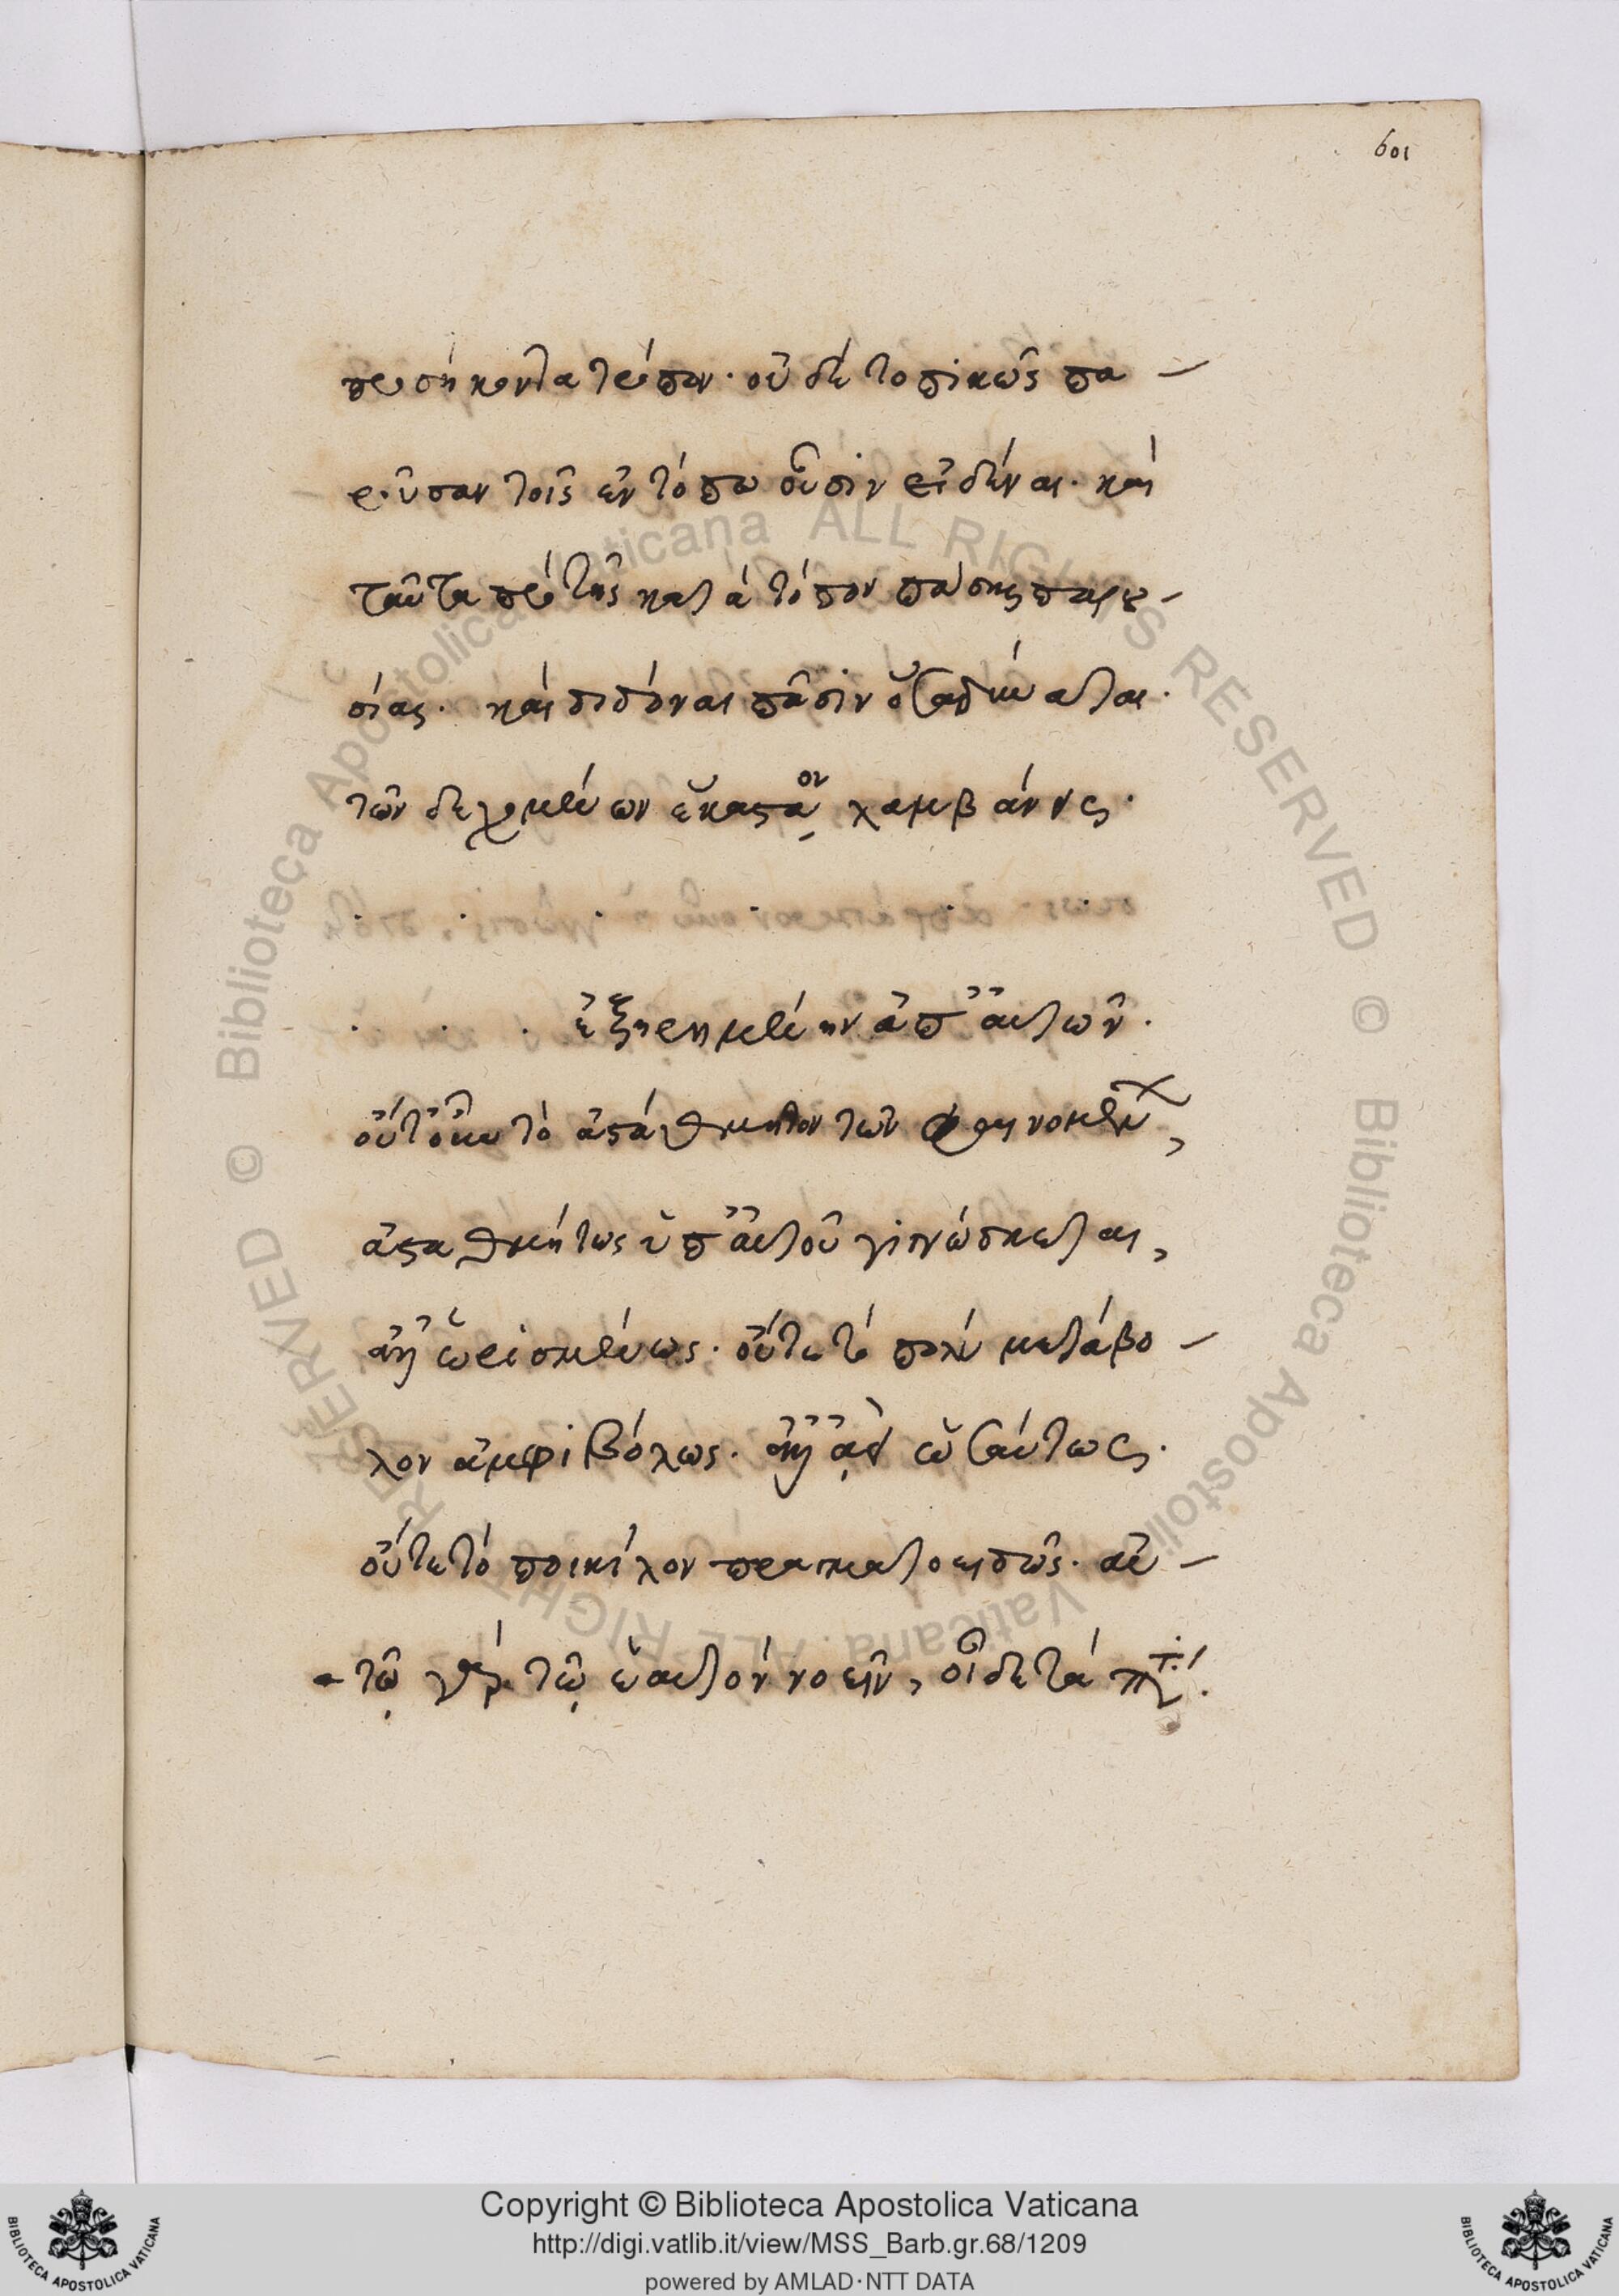 601
προσήκοντα τρόπον. οὐδὲ τοπικῶς πα-
ροῦσαν τοῖς ἐν τόπω οὖσιν εἰδέναι. καὶ
ταῦτα πρὸ τῆς κατὰ τόπον πάσης παρου-
σίας. καὶ διδόναι πᾶσιν ὅσα δύναται
τῶν δεχομένων ἕκαστον λαμβάνειν.
. . . ἐξηρημένην ἀπ' αὐτῶν.
οὔτ' οὖν τὸ ἀστάθμητον τῶν
ἀσταθμήτως ὑπ' αὐτοῦ γινώσκεται,
ἀλλ' ὡρισμένως. οὔτε τὸ πολυμετάβο-
λον ἀμφιβόλως. ἀλλ' ἀεὶ ὡσαύτως.
οὔτε τὸ ποικίλον πραγματοειδῶς. αὐ-
τῷ γὰρ τῷ ἑαυτὸν νοεῖν, οἶδε τὰ
Copyright © Biblioteca Apostolica Vaticana
http://digi.vatlib.it/view/MSS_Barb.gr.68/1209
powered by AMLAD·NTT DATA
BIBLIOTECA APOSTOLICA VATICANA
BIBLIOTECA APOSTOLICA VATICANA
© Biblioteca Apostolica Vaticana ALL RIGHTS RESERVED © Biblioteca Apostolica Vaticana ALL RIGHTS RESERVED